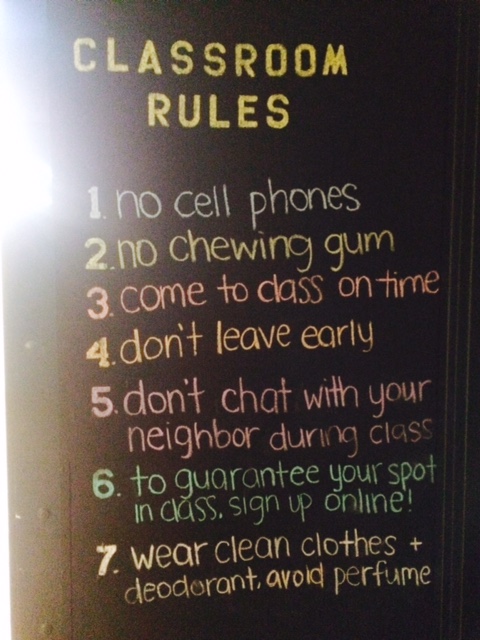 CLASSROOM
RULES
1. no cell phones
2. no chewing gum
3. come to class on time
4. don't leave early
5. don't chat with your
neighbor during class
6. to guarantee your spot
in class, sign up online!
7. wear clean clothes +
deodorant, avoid perfume